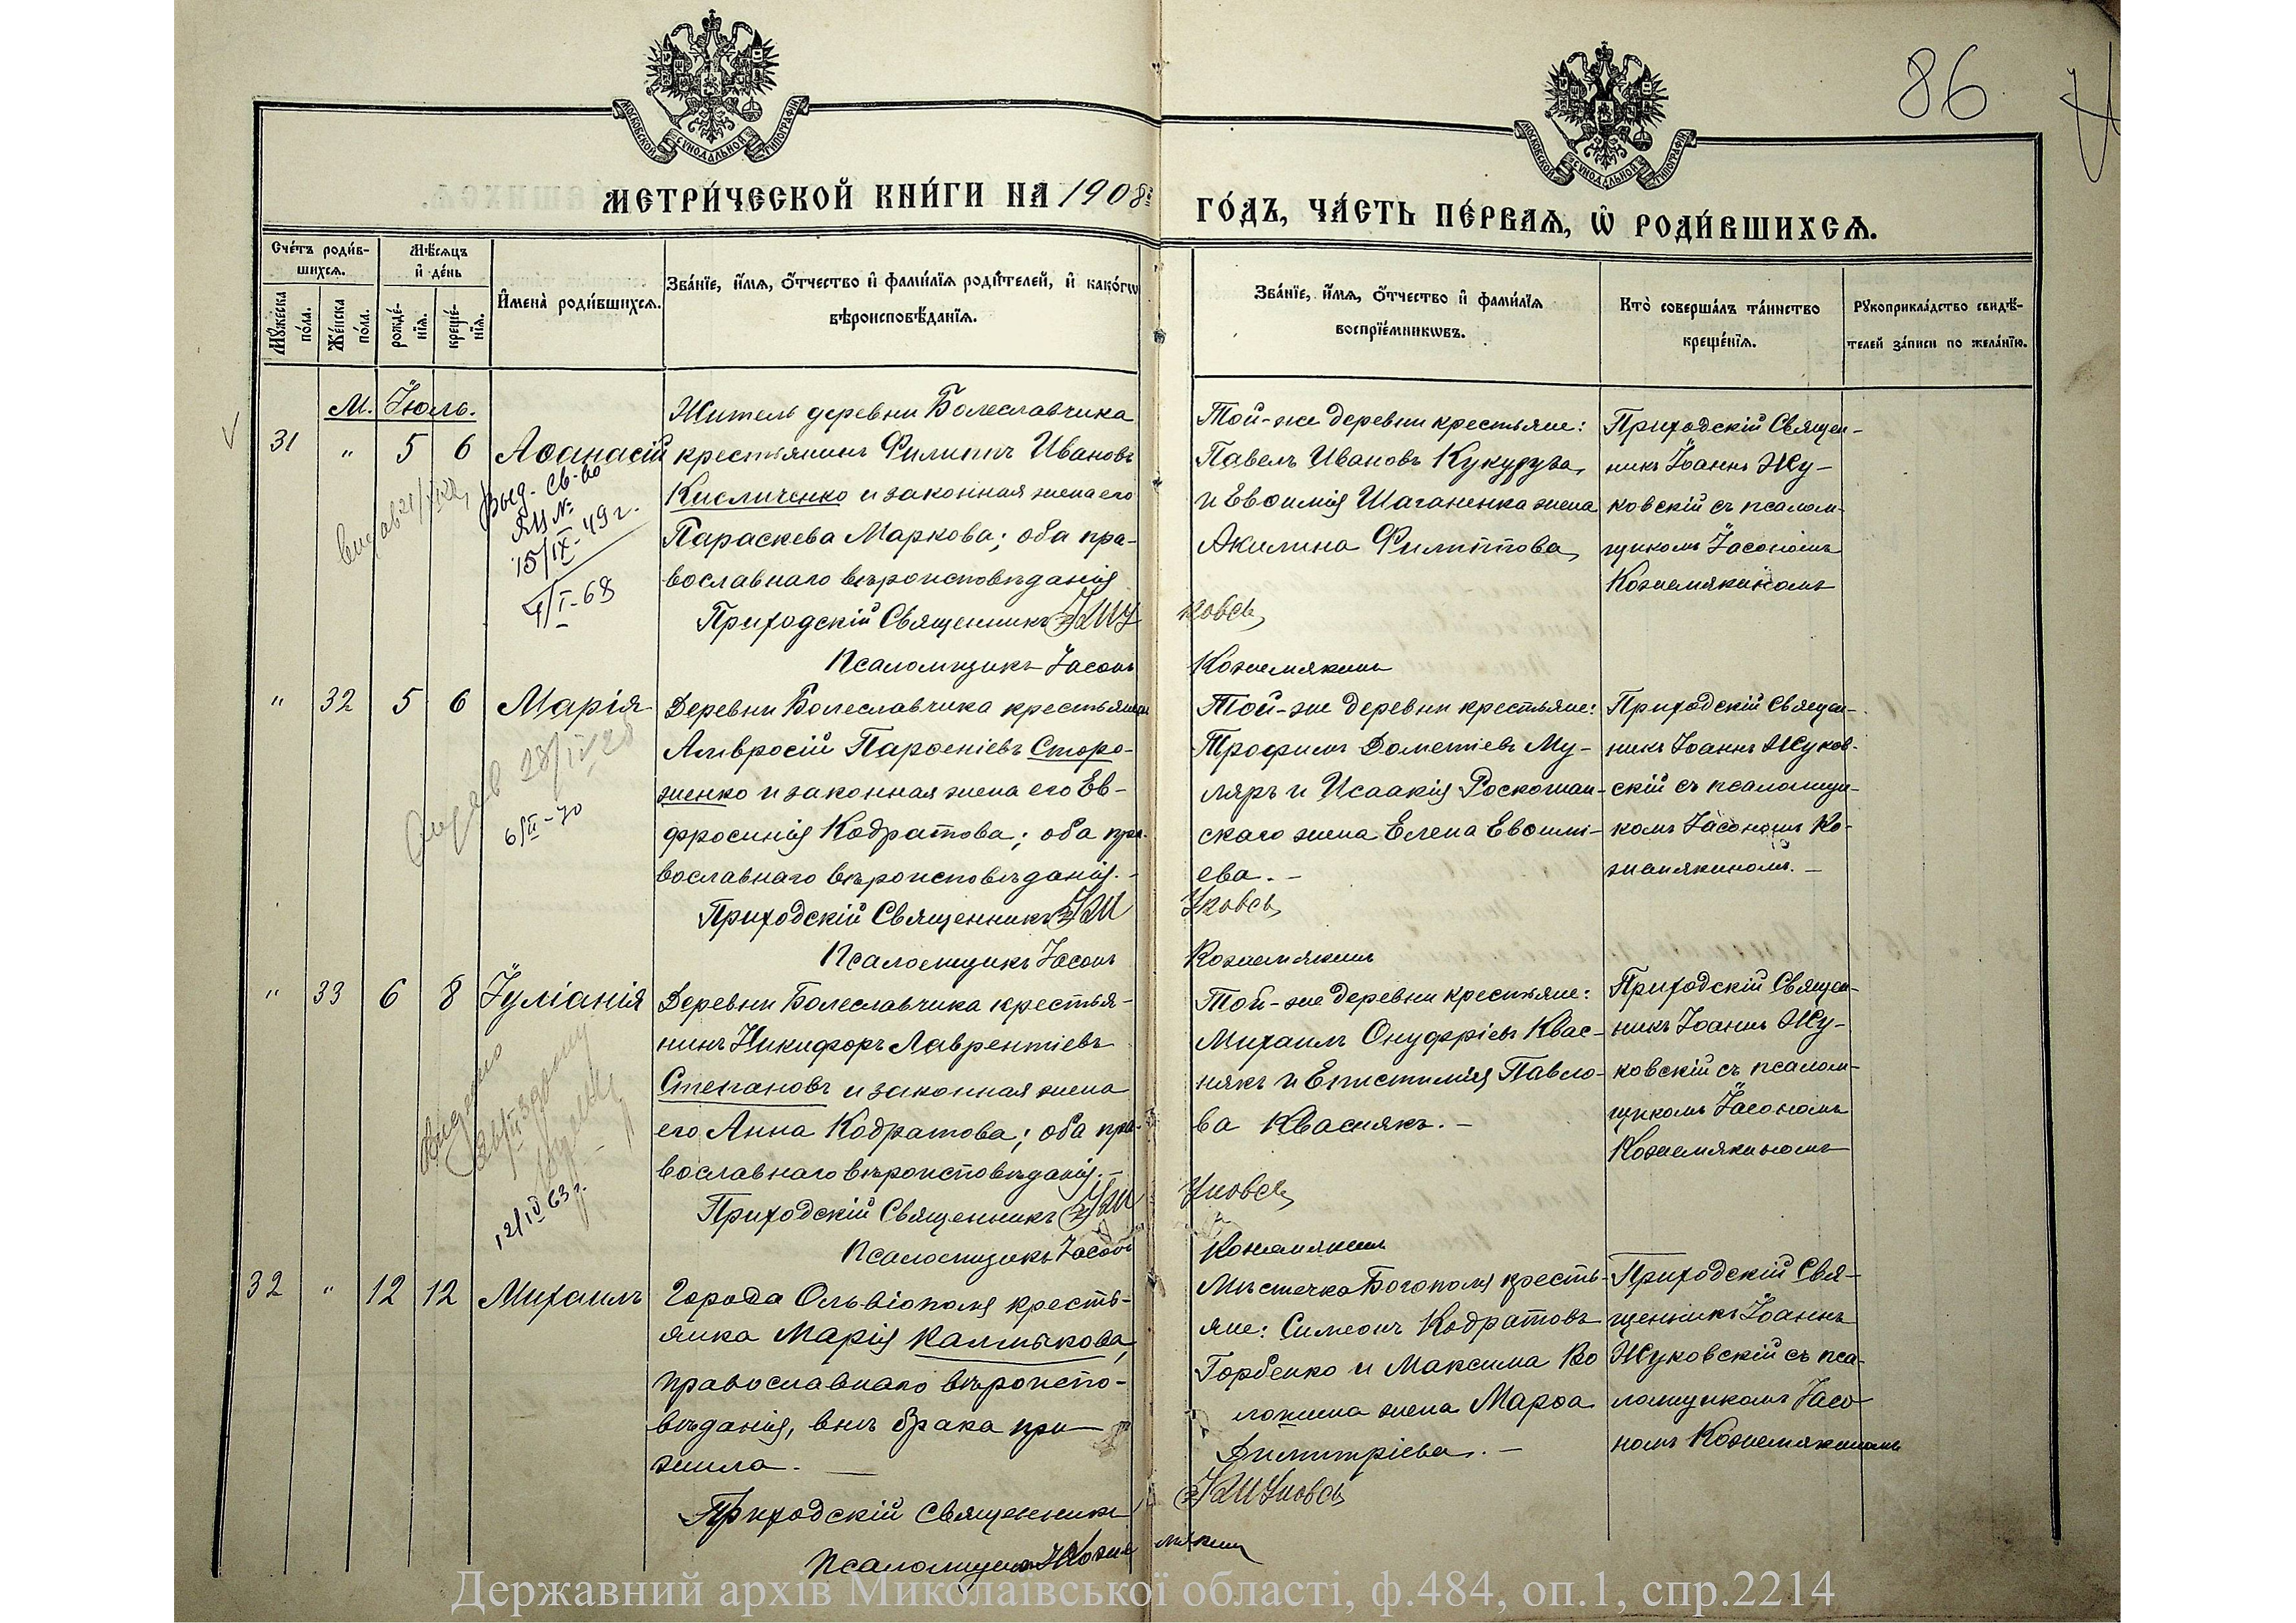 МОСКОВСКОЙ СѴНОДАЛЬНОЙ ТИПОГРАФІИ
МОСКОВСКОЙ СѴНОДАЛЬНОЙ ТИПОГРАФІИ
86
МЕТРИ́ЧЕСКОЙ КНИ́ГИ НА 1908й
ГО́ДЪ, ЧА́СТЬ ПЕ́РВАѦ, Ѡ҆ РОДИ́ВШИХСѦ.
Сче́тъ роди́в-
шихсѧ.
Мꙋ́жеска по́ла.
Же́нска по́ла.
Мѣ́сѧцъ
и҆ де́нь
рожде́-
нїѧ.
креще́-
нїѧ.
И҆мена̀ роди́вшихсѧ.
Зва́нїе, и҆́мѧ, ѻ҆́тчество и҆ фами́лїѧ роди́телей, и҆ како́гѡ
вѣроисповѣ́данїѧ.
Зва́нїе, и҆́мѧ, ѻ҆́тчество и҆ фами́лїѧ
воспрїе́мникѡвъ.
Кто̀ соверша́лъ та́инство
креще́нїѧ.
Рꙋкоприкла́дство свидѣ́-
телей за́писи по жела́нїю.
М. Іюль.
31 " 5 6 Аѳанасій
Выд. св-во
ЯЩ №
15/IX-49 г.
4/I-68
Житель деревни Болеславчика
крестьянинъ Филиппъ Ивановъ
Кисличенко и законная жена его
Параскева Маркова; оба пра-
вославнаго вѣроисповѣданія
Приходскій Священникъ І Жу
ковскі
Псаломщикъ Іасонъ
Кожемякинъ
Той-же деревни крестьяне:
Павелъ Ивановъ Кукуруза,
и Евѳимія Шаганенка жена
Акилина Филиппова
Приходскій Священ-
никъ Іоаннъ Жу-
ковскій съ псалом-
щикомъ Іасономъ
Кожемякиномъ
" 32 5 6 Марія
28/IV 28
6/II-70
Деревни Болеславчика крестьянинъ
Амвросій Парѳеніевъ Сторо-
женко и законная жена его Ев-
фросинія Кодратова; оба пра-
вославнаго вѣроисповѣданія.-
Приходскій Священникъ І Ж
уковскі
Псаломщикъ Іасонъ
Кожемякинъ
Той-же деревни крестьяне:
Трофимъ Дометіевъ Му-
ляръ и Исаакія Роскошан-
скаго жена Елена Евѳимі-
ева. -
Приходскій Священ-
никъ Іоаннъ Жуков-
скій съ псаломщи-
комъ Іасономъ Ко-
жемякиномъ. -
" 33 6 8 Іуліанія
12/IV 63 г.
Деревни Болеславчика крестья-
нинъ Никифоръ Лаврентіевъ
Степановъ и законная жена
его Анна Кодратова; оба пра-
вославнаго вѣроисповѣданія.-
Приходскій Священникъ І Ж
уковскі
Псаломщикъ Іасонъ
Кожемякинъ
Той-же деревни крестьяне:
Михаилъ Онуфріевъ Квас-
някъ и Епистимія Павло-
ва Квасняк. -
Приходскій Священ-
никъ Іоаннъ Жу-
ковскій съ псалом-
щикомъ Іасономъ
Кожемякиномъ
32 " 12 12 Михаилъ
Города Ольвіополя кресть-
янка Марія Калмыкова,
православнаго вѣроиспо-
вѣданія, внѣ брака при-
жила. -
Приходскій Священникъ
І Жуковскі
Псаломщикъ І Коже
мякин
Мѣстечка Богополя кресть-
яне: Симеонъ Кодратовъ
Горбенко и Максима Во
лошина жена Марѳа
Димитріева. -
Приходскій Свя-
щенникъ Іоаннъ
Жуковскій съ пса-
ломщикомъ Іасо-
номъ Кожемякиномъ
Державний архів Миколаївської області, ф.484, оп.1, спр.2214